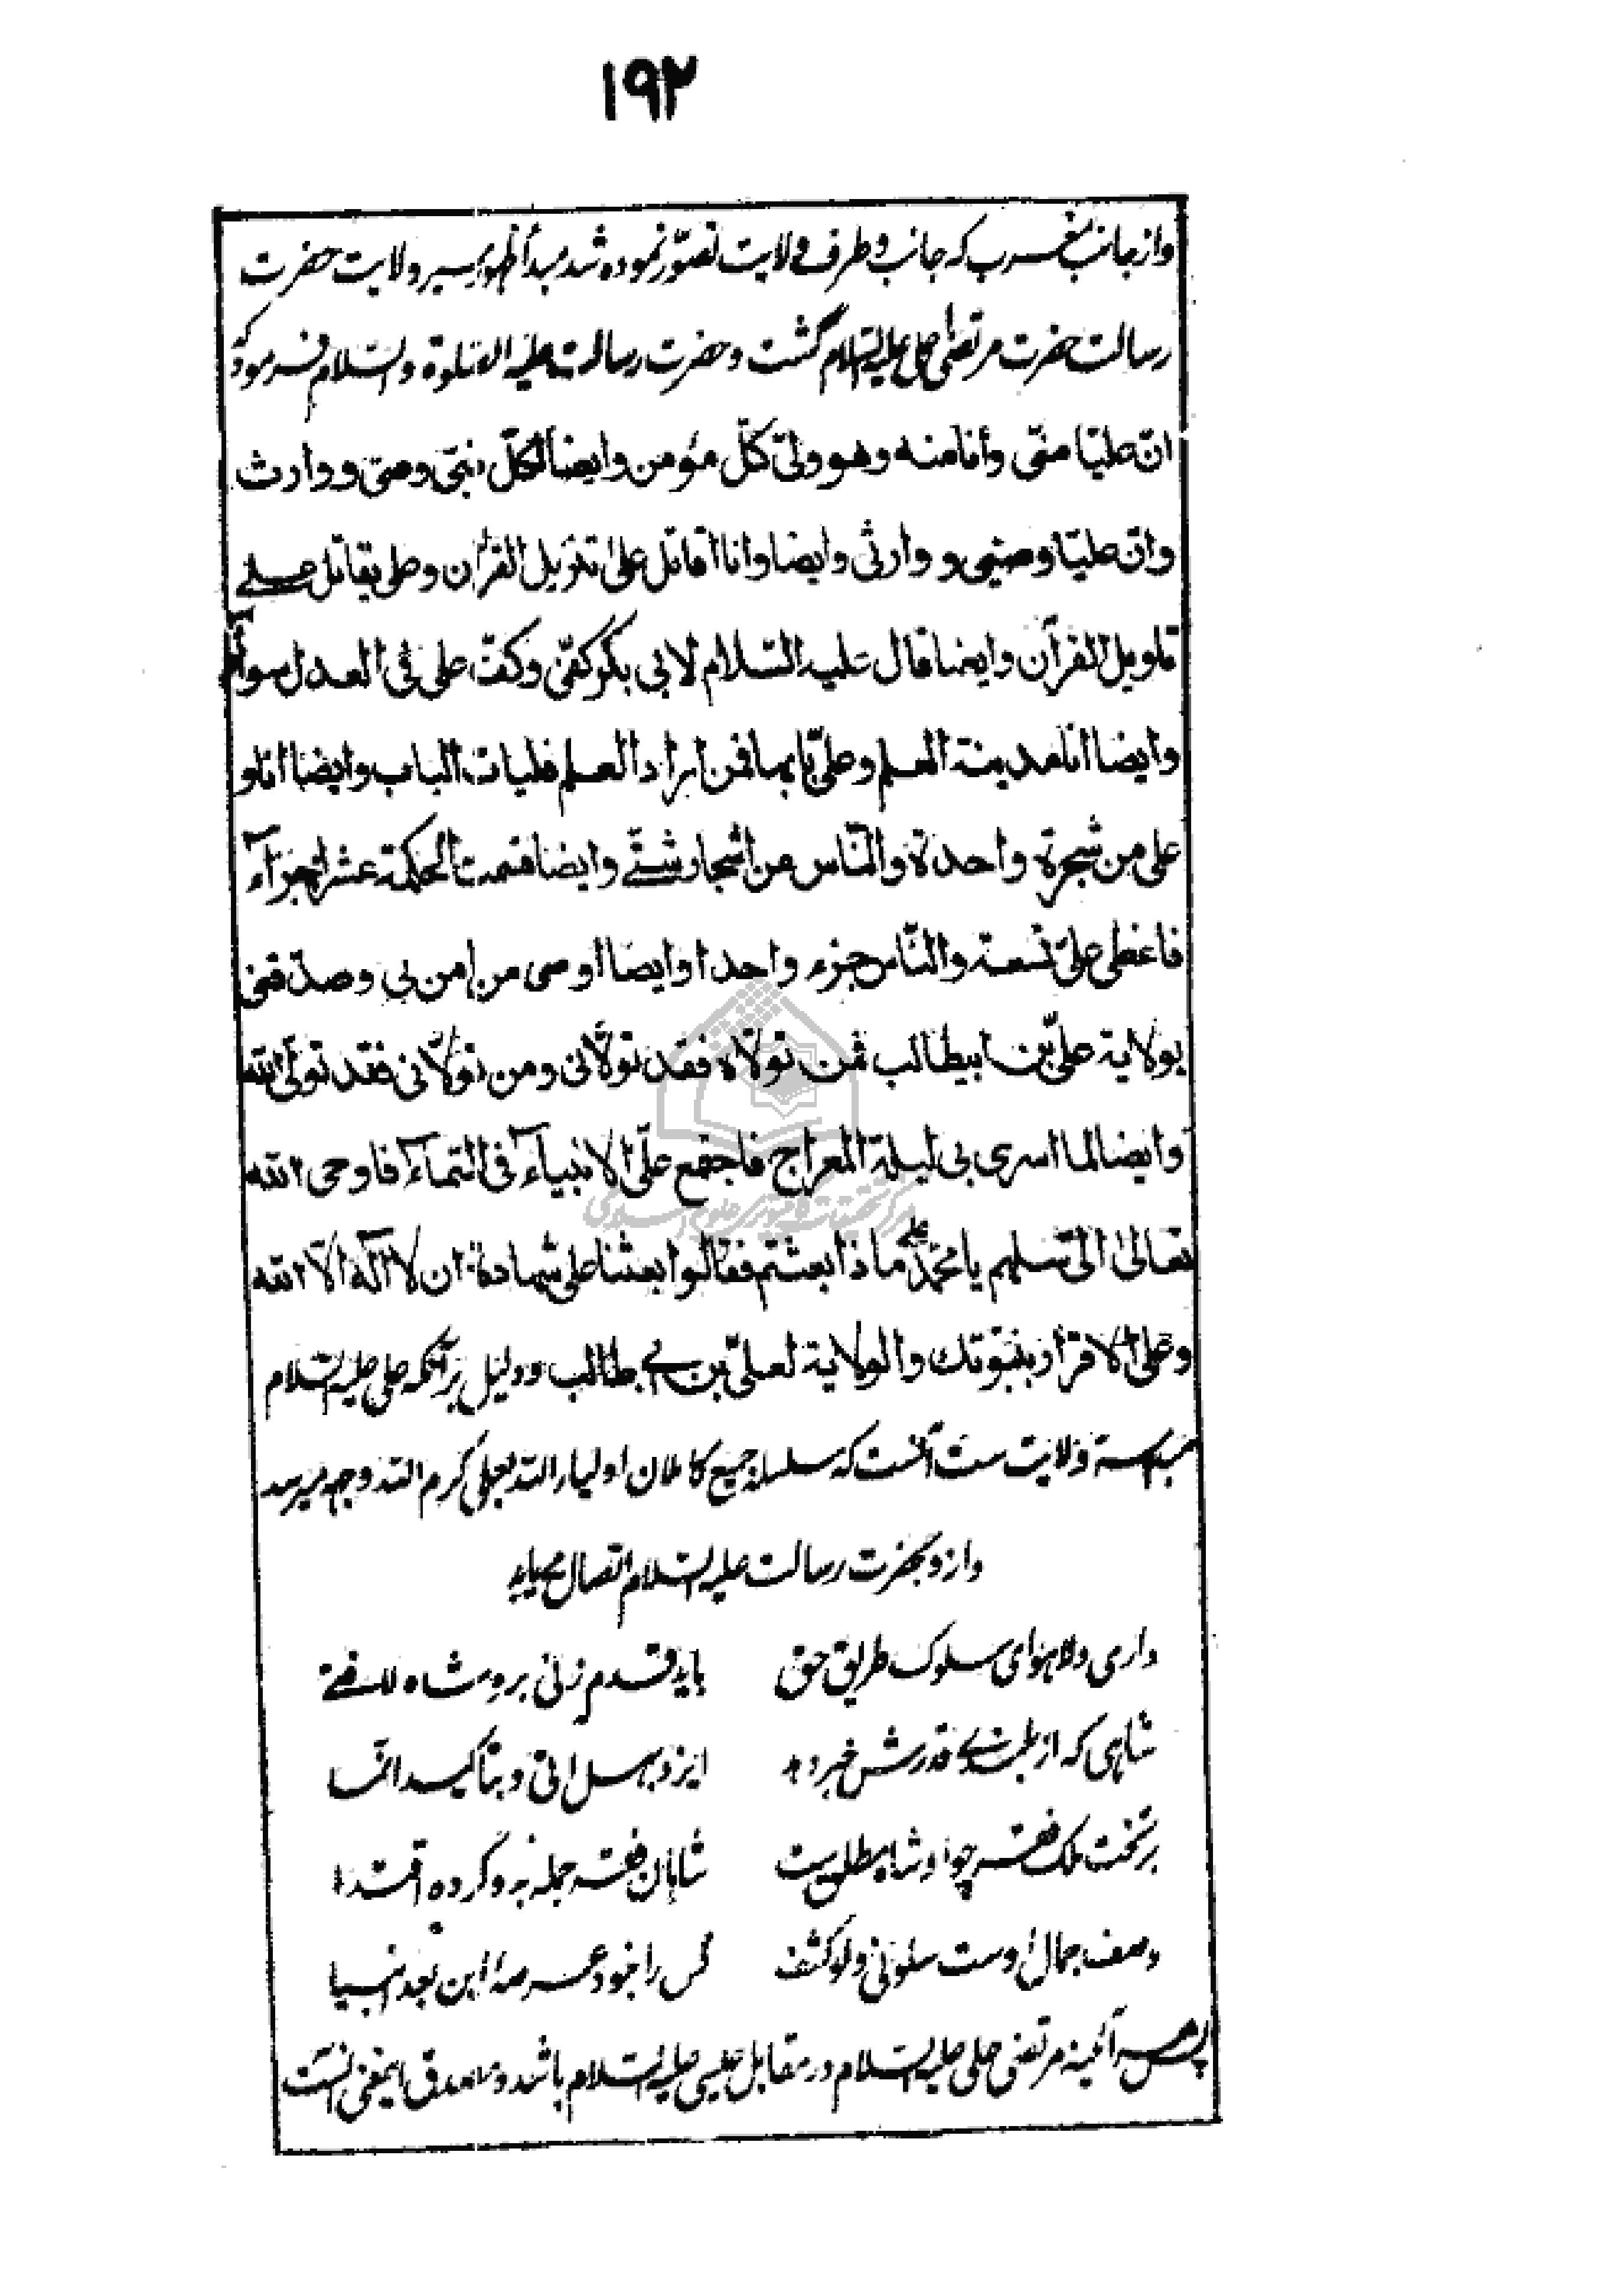 ۱۹۲
واز جانب مغرب که جانب و طرف ولایت تصوّر نموده شد مبدأ ظهور سیر ولایت حضرت
رسالت حضرت مرتضی علی علیه السّلام گشت و حضرت رسالت علیه الصّلوة والسّلام فرمود که
انّ علیّا منّی وأنا منه وهو ولیّ کلّ مؤمن وایضا لکلّ نبیّ وصیّ ووارث
وانّ علیّا وصیّی و وارثی وایضا وانا اقاتل علیٰ تنزیل القرآن وعلی یقاتل علے
تاویل القرآن وایضا قال علیه السّلام لابی بکر کفّی وکفّ علی فی العدل سوآء
وایضا انا مدینة العلم وعلیّ بابها فمن اراد العلم فلیات الباب وایضا انا و
علی من شجرة واحدة والنّاس من اشجار شتّے وایضا قسمت الحکمة عشر اجزآء
فاعطی علیّ تسعة والنّاس جزء واحدا وایضا اوصی من امن بی وصدّقنی
بولایة علیّ بن ابیطالب فمن تولّاه فقد تولّانی ومن تولّانی فقد تولّی الله
وایضا لما اسری بی لیلة المعراج فاجتمع علیّ الانبیآء فی السّمآء فاوحی الله
تعالیٰ الیّ سلهم یا محمّد بما ذا بعثتم فقالوا بعثنا علی شهادة ان لا آله الّا الله
وعلی الاقرار بنبوّتک والولایة لعلیّ بن ابی طالب ودلیل بر آنکه علی علیه السّلام
مبدا سرّ ولایت ست آنست که سلسله جمیع کاملان اولیاء الله بعلی کرم الله وجهه میرسد
واز و بحضرت رسالت علیه السّلام اتصال مییابد
داری دلا هوای سلوک طریق حق باید قدم زنی بره شاه لافتے
شاهی که از بلندے قدرش خبر دهد ایزد بهل اتی و بتاکید انّما
بر تخت ملک فقر چو او شاه مطلق ست شاهان فقر جمله بدو کرده اقتدا
وصف جمال اوست سلونی ولو کشف کس را نبود عرصه این بعد انبیا
پس سر آئینه مرتضی علی علیه السّلام در مقابل عیسی علیه السّلام باشد و مصدق اینمعنی آنست